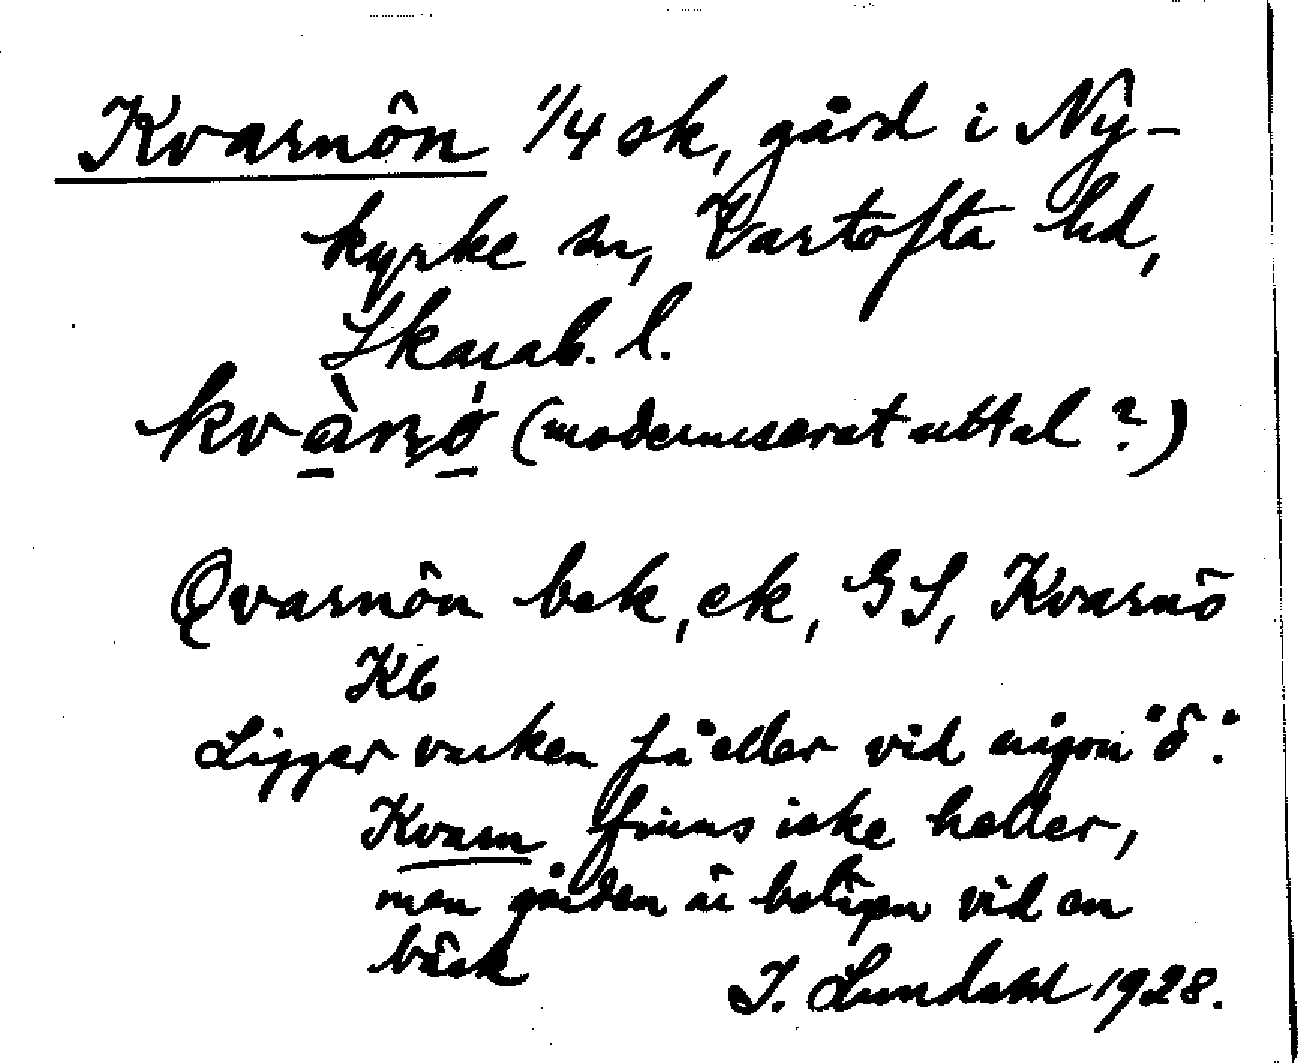 Kvarnön 1/4 sk, gård i Ny-
kyrke sn, Vartofta hd,
Skarab. l.
kvànö́ (moderniserat uttal?)
Qvarnön bek, ek, GS, Kvarnö
Kb
Ligger varken på eller vid någon "ö".
Kvarn finns icke heller,
men gården är belägen vid en
bäck
I. Lundahl 1928.